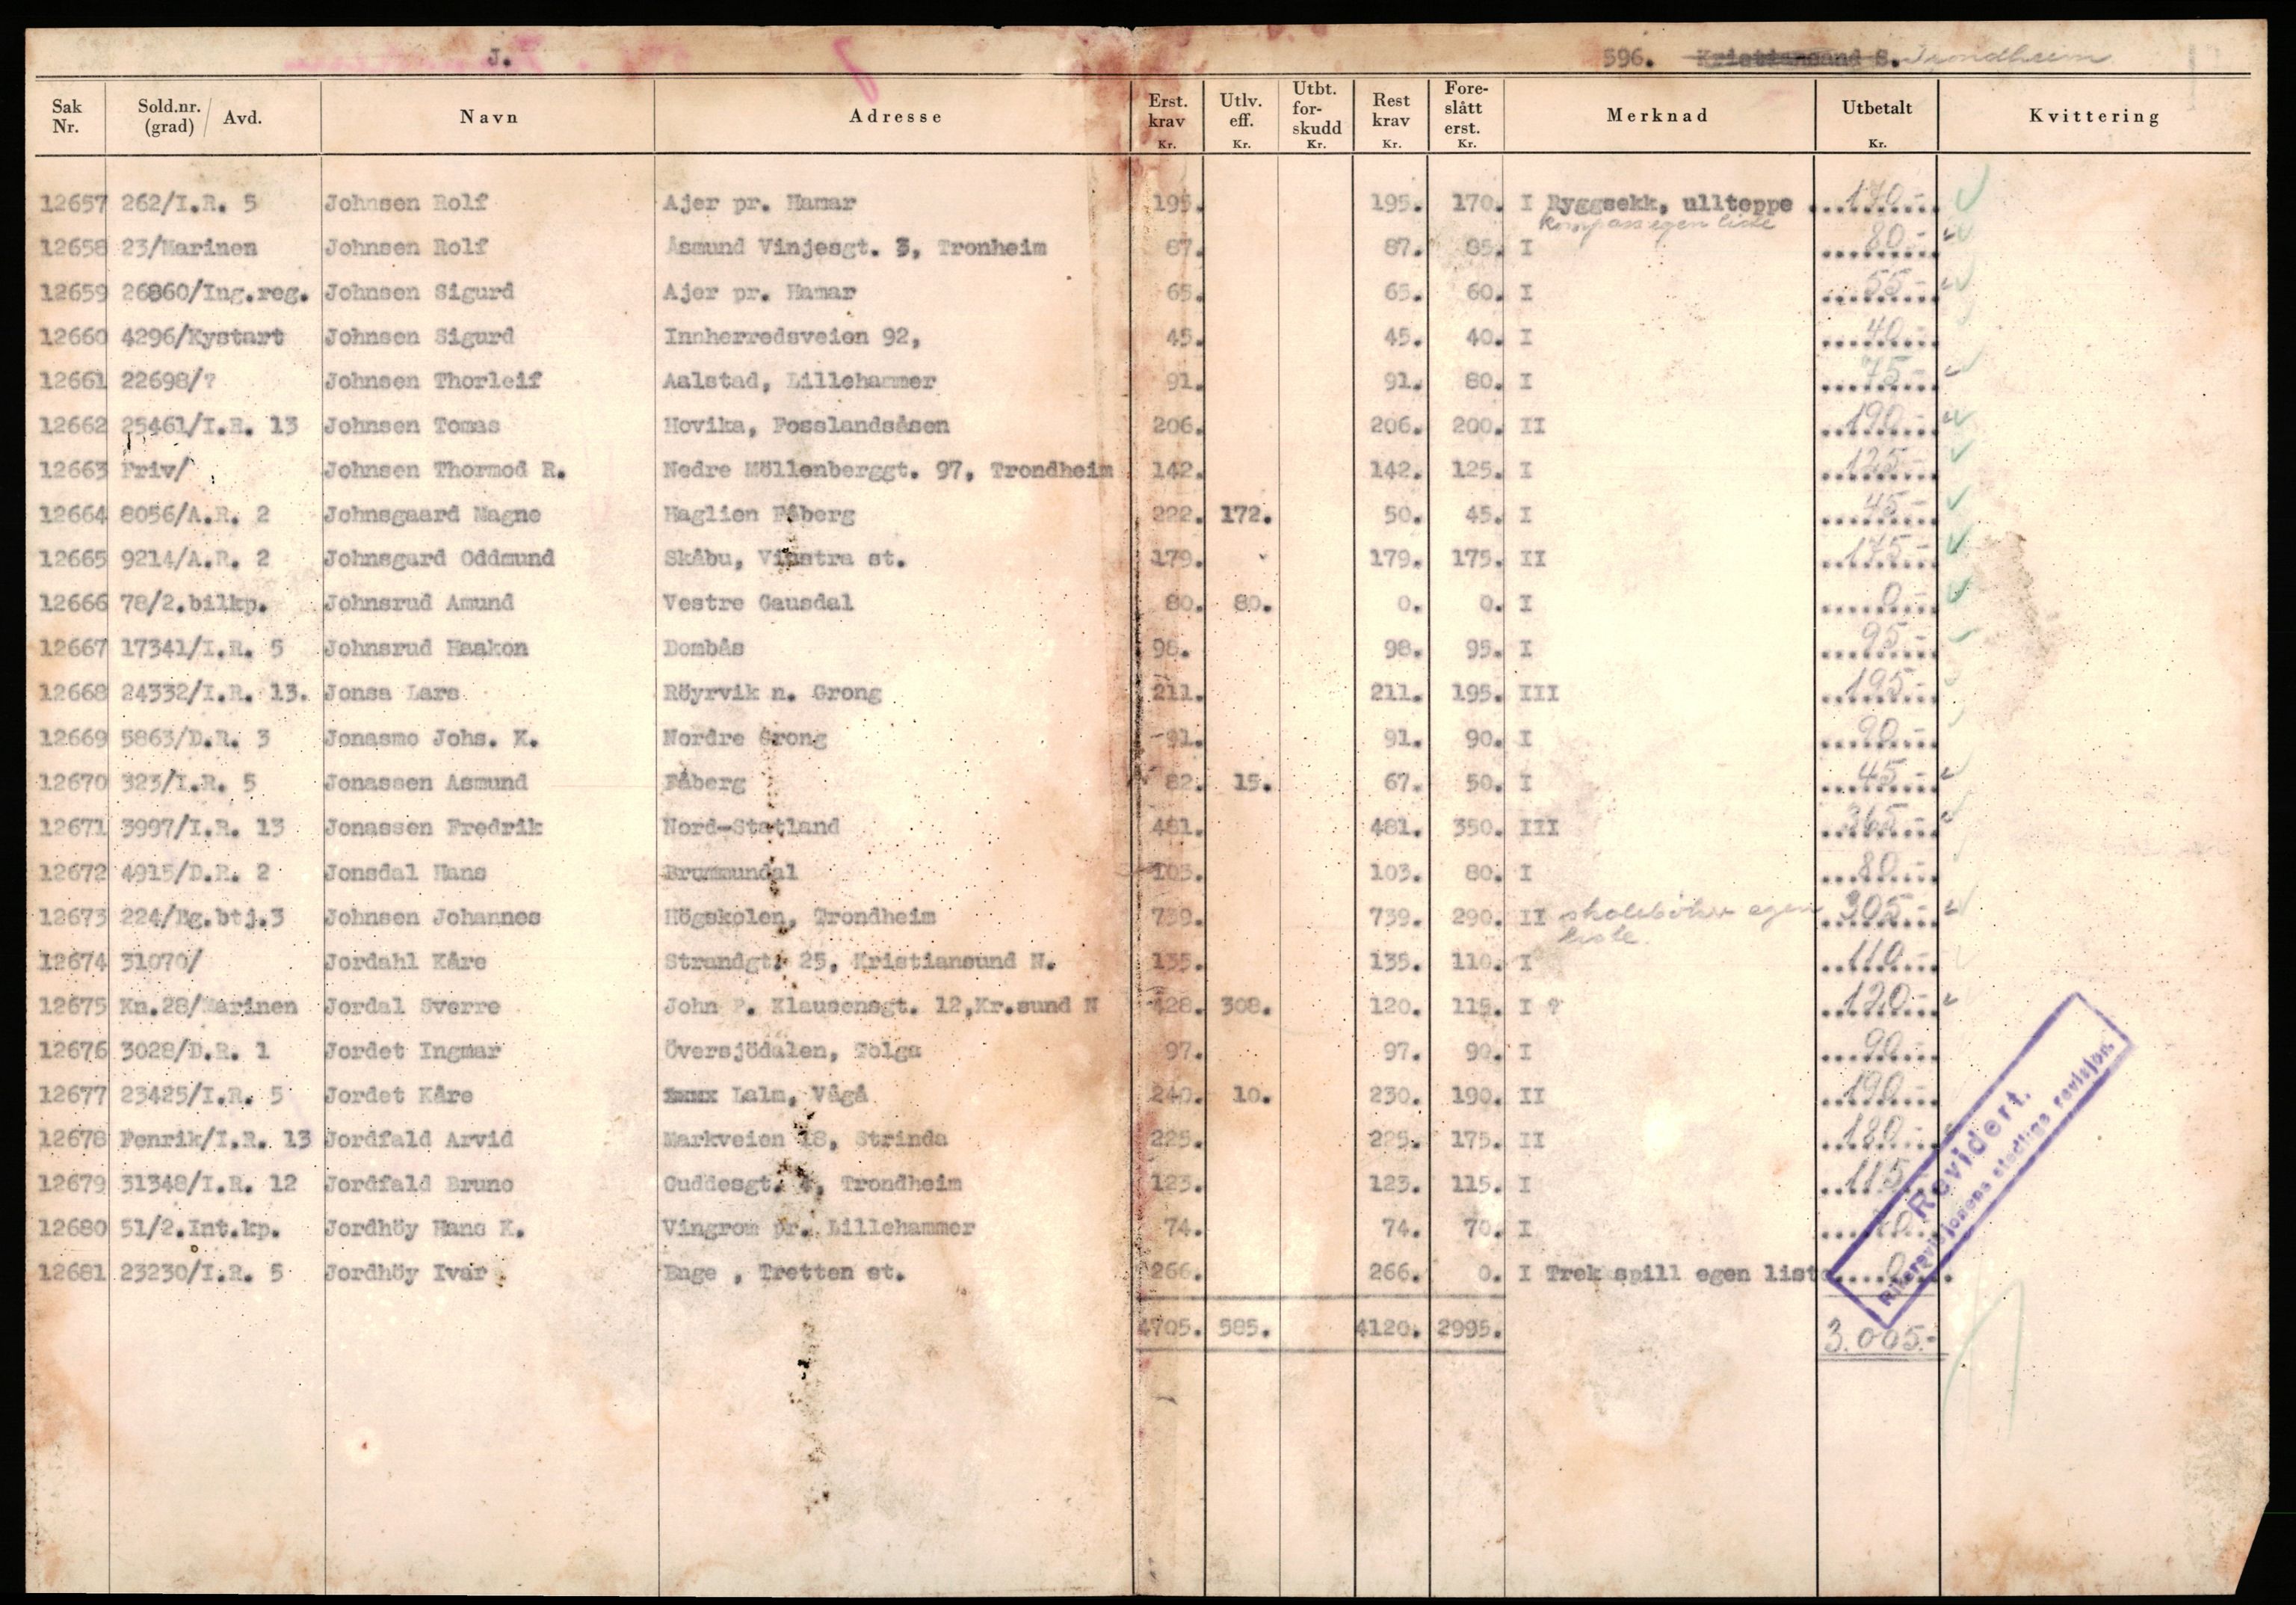 J. 596. Kristiansand S. Trondheim
Sak Nr. Sold.nr. (grad) / Avd. Navn Adresse Erst. krav Kr. Utlv. eff. Kr. Utbt. for- skudd Kr. Rest krav Kr. Fore- slått erst. Kr. Merknad Utbetalt Kr. Kvittering
12657 262/I.R. 5 Johnsen Rolf Ajer pr. Hamar 195. 195. 170. I Ryggsekk, ullteppe 170.-
kompass egen liste
12658 23/Marinen Johnsen Rolf Åsmund Vinjesgt. 3, Tronheim 87. 87. 85. I 80.-
12659 26860/Ing.reg. Johnsen Sigurd Ajer pr. Hamar 65. 65. 60. I 55.-
12660 4296/Kystart Johnsen Sigurd Innherredsveien 92, 45. 45. 40. I 40.-
12661 22698/? Johnsen Thorleif Aalstad, Lillehammer 91. 91. 80. I 75.-
12662 25461/I.R. 13 Johnsen Tomas Hovika, Fosslandsåsen 206. 206. 200. II 190.-
12663 Friv/ Johnsen Thormod R. Nedre Möllenberggt. 97, Trondheim 142. 142. 125. I 125.-
12664 8056/A.R. 2 Johnsgaard Magne Haglien Fåberg 222. 172. 50. 45. I 45.-
12665 9214/A.R. 2 Johnsgard Oddmund Skåbu, Vinstra st. 179. 179. 175. II 175.-
12666 78/2.bilkp. Johnsrud Amund Vestre Gausdal 80. 80. 0. 0. I 0.-
12667 17341/I.R. 5 Johnsrud Haakon Dombås 98. 98. 95. I 95.-
12668 24332/I.R. 13. Jonsa Lars Röyrvik n. Grong 211. 211. 195. III 195.-
12669 5863/D.R. 3 Jonasmo Johs. K. Nordre Grong 91. 91. 90. I 90.-
12670 323/I.R. 5 Jonassen Asmund Fåberg 82. 15. 67. 50. I 45.-
12671 3997/I.R. 13 Jonassen Fredrik Nord-Statland 481. 481. 350. III 365.-
12672 4915/D.R. 2 Jonsdal Hans Brummundal 103. 103. 80. I 80.-
12673 224/Bg.btj.3 Johnsen Johannes Högskolen, Trondheim 739. 739. 290. II skolebøker egen 305.-
liste.
12674 31070/ Jordahl Kåre Strandgt. 25, Kristiansund N. 135. 135. 110. I 110.-
12675 Kn.28/Marinen Jordal Sverre John P. Klausensgt. 12,Kr.sund N 428. 308. 120. 115. I ? 120.-
12676 3028/D.R. 1 Jordet Ingmar Översjödalen, Tolga 97. 97. 90. I 90.-
12677 23425/I.R. 5 Jordet Kåre Lalm, Vågå 240. 10. 230. 190. II 190.-
12678 Fenrik/I.R. 13 Jordfald Arvid Markveien 18, Strinda 225. 225. 175. II 180.-
12679 31348/I.R. 12 Jordfald Bruno Guddesgt. 4, Trondheim 123. 123. 115. I 115.
12680 51/2.Int.kp. Jordhöy Hans K. Vingrom pr. Lillehammer 74. 74. 70. I
12681 23230/I.R. 5 Jordhöy Ivar Enge , Tretten st. 266. 266. 0. I Trekspill egen liste 0.
4705. 585. 4120. 2995. 3.005.-
Revidert.
Riksrevisjonens stedlige revisjon.